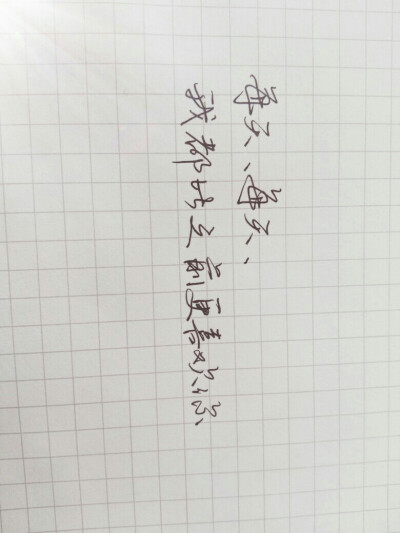 每天、每天、
我都比之前更喜欢你、